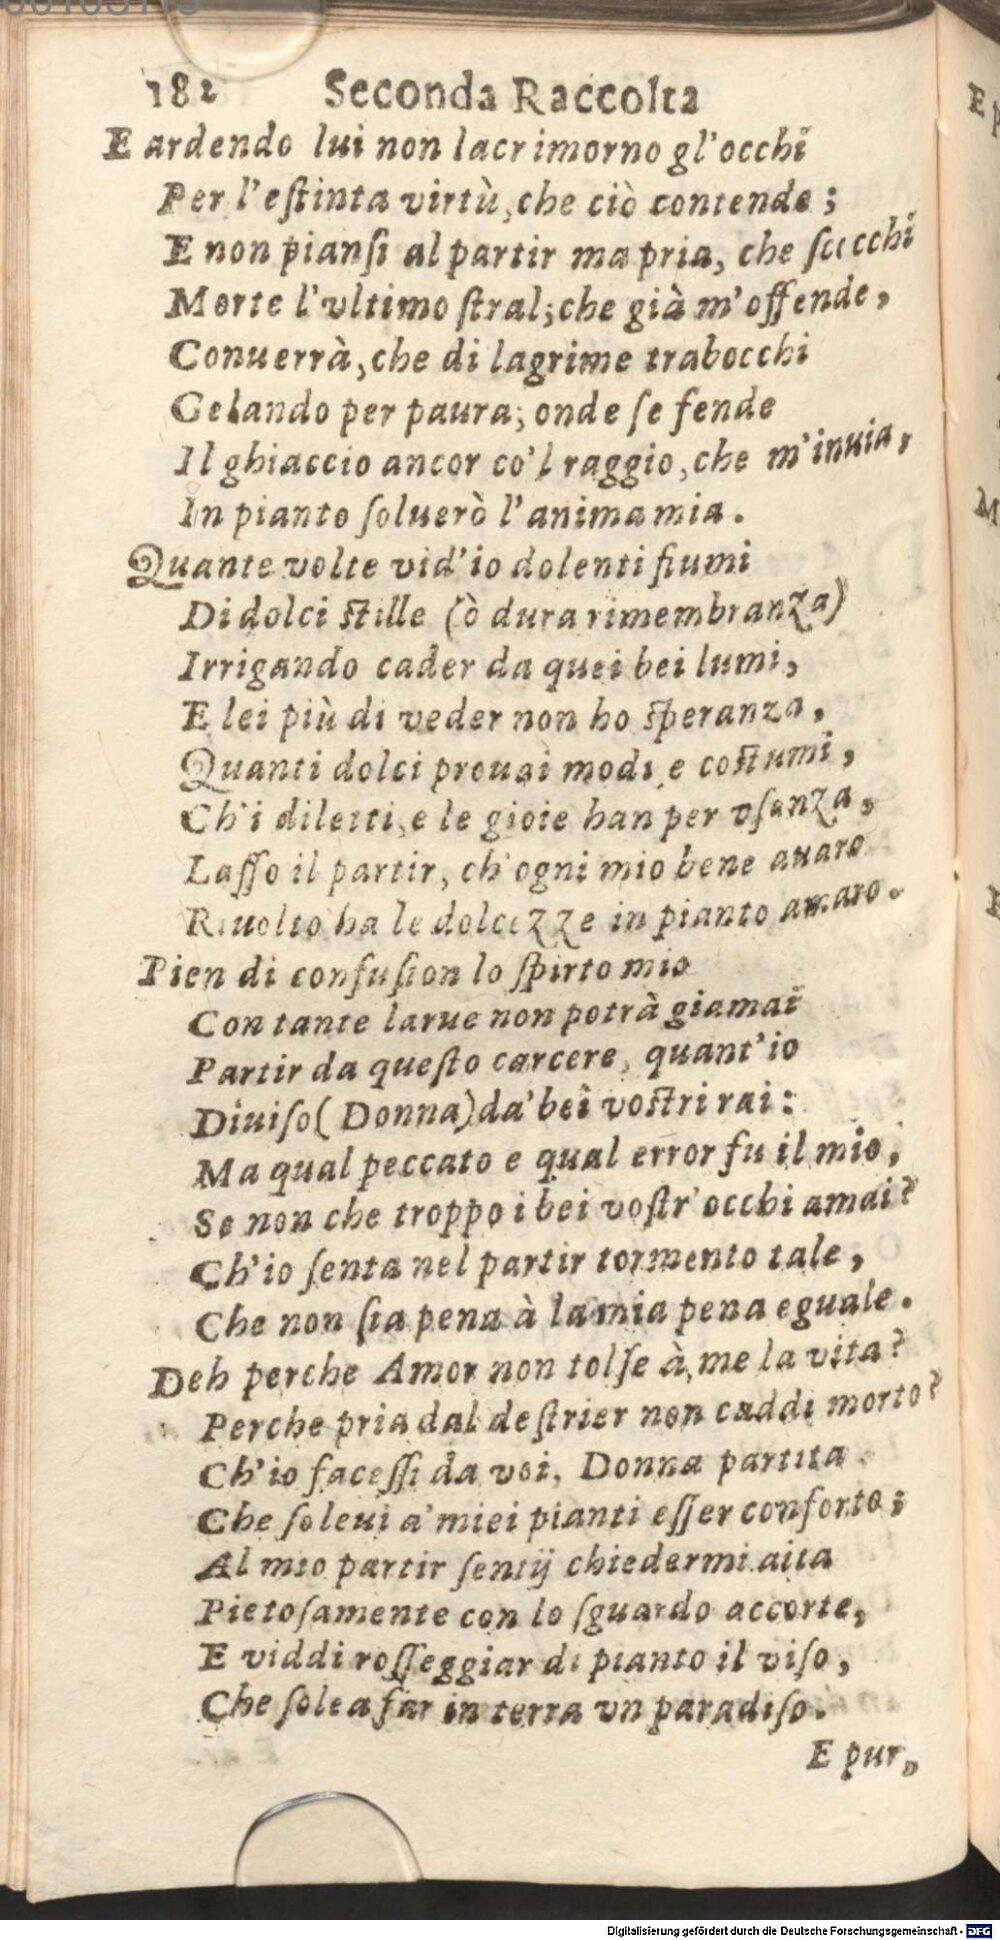 182 Seconda Raccolta
E ardendo lui non lacrimorno gl'occhi
Per l'eſtinta virtù, che ciò contende;
E non pianſi al partir ma pria, che ſcocchi
Morte l'vltimo ſtral; che già m'offende,
Conuerrà, che di lagrime trabocchi
Gelando per paura; onde ſe fende
Il ghiaccio ancor co'l raggio, che m'inuia,
In pianto ſoluerò l'anima mia.
Quante volte vid'io dolenti fiumi
Di dolci ſtille (ò dura rimembranza)
Irrigando cader da quei bei lumi,
E lei più di veder non ho ſperanza,
Quanti dolci prouai modi, e coſtumi,
Ch'i diletti, e le gioie han per vſanza,
Laſſo il partir, ch'ogni mio bene auaro
Riuolto ha le dolcezze in pianto amaro.
Pien di confuſion lo ſpirto mio
Con tante larue non potrà giamai
Partir da queſto carcere, quant'io
Diuiſo (Donna) da' bei voſtri rai:
Ma qual peccato e qual error fu il mio,
Se non che troppo i bei voſtr'occhi amai?
Ch'io ſenta nel partir tormento tale,
Che non ſia pena à la mia pena eguale.
Deh perche Amor non tolſe à me la vita?
Perche pria dal deſtrier non caddi morto?
Ch'io faceſſi da voi, Donna partita
Che ſoleui a' miei pianti eſſer conforto;
Al mio partir ſentij chiedermi aita
Pietoſamente con lo ſguardo accorte,
E viddi roſſeggiar di pianto il viſo,
Che ſolea far in terra vn paradiſo.
E pur,
Digitalisierung gefördert durch die Deutsche Forschungsgemeinschaft - DFG